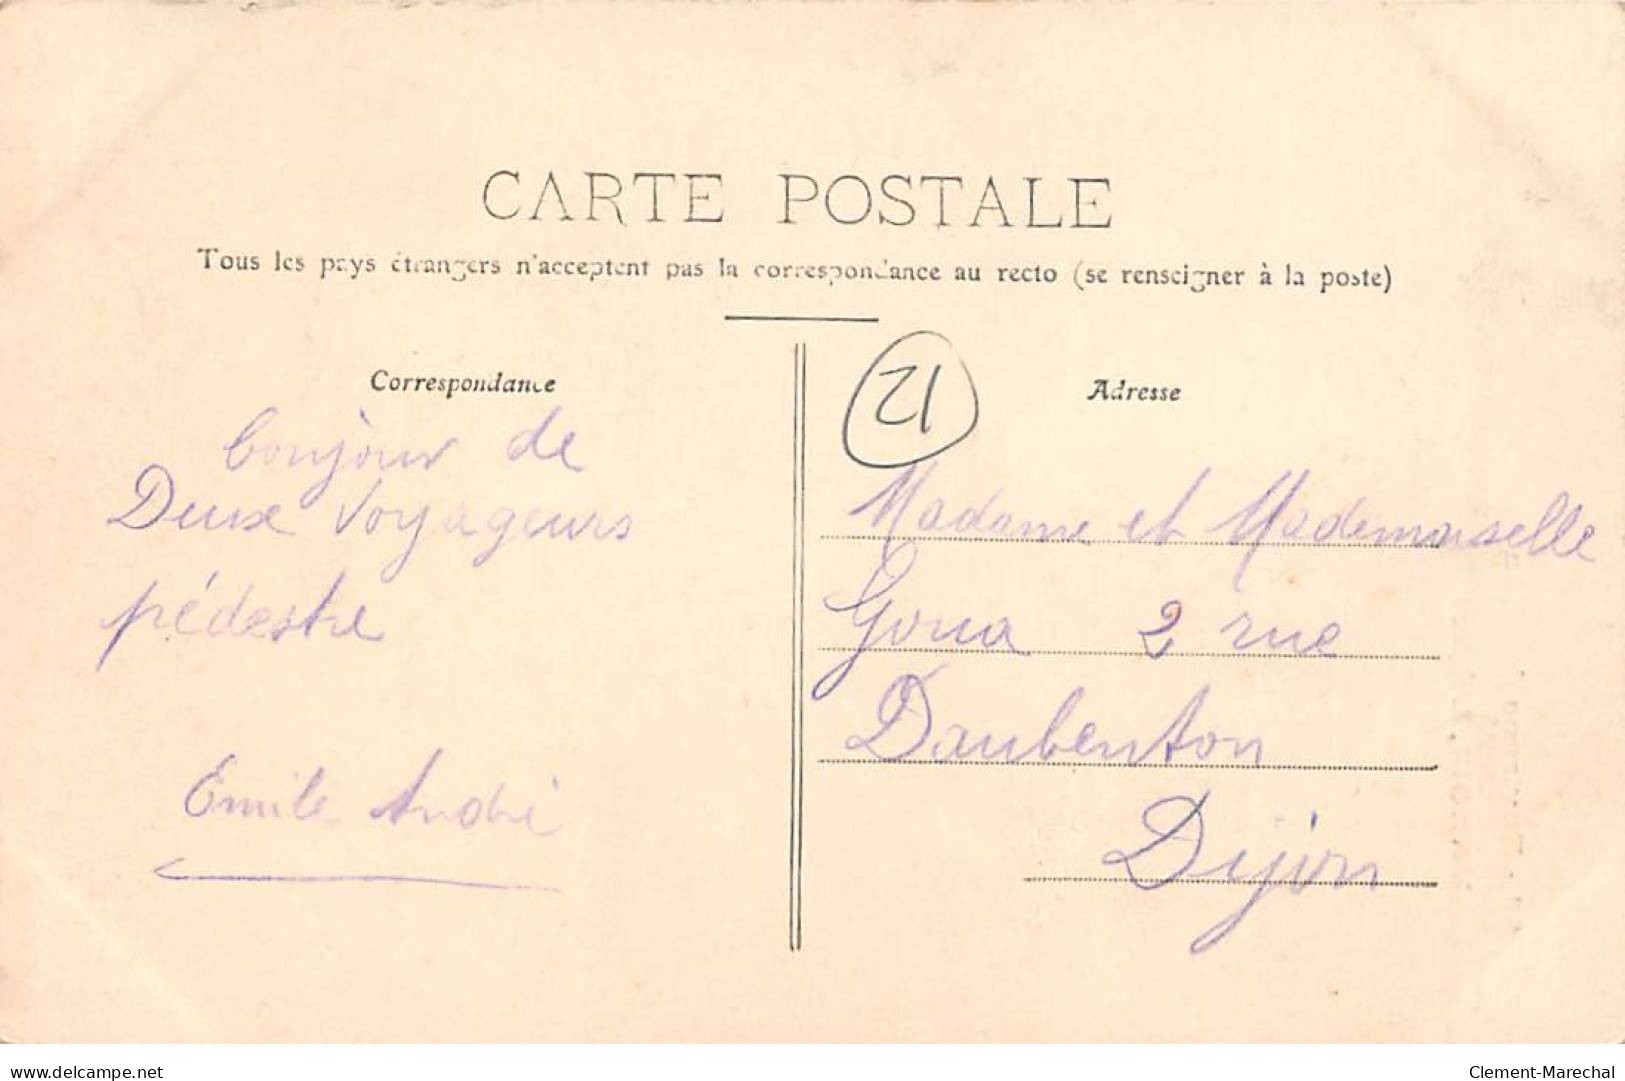 CARTE POSTALE
Tous les pays étrangers n'acceptent pas la correspondance au recto (se renseigner à la poste)
Correspondance
bonjour de
Deux Voyageurs
pédestre
Emile André
21
Adresse
Madame et Mademoiselle
Goua 2 rue
Daubenton
Dijon
www.delcampe.net
Clement-Marechal